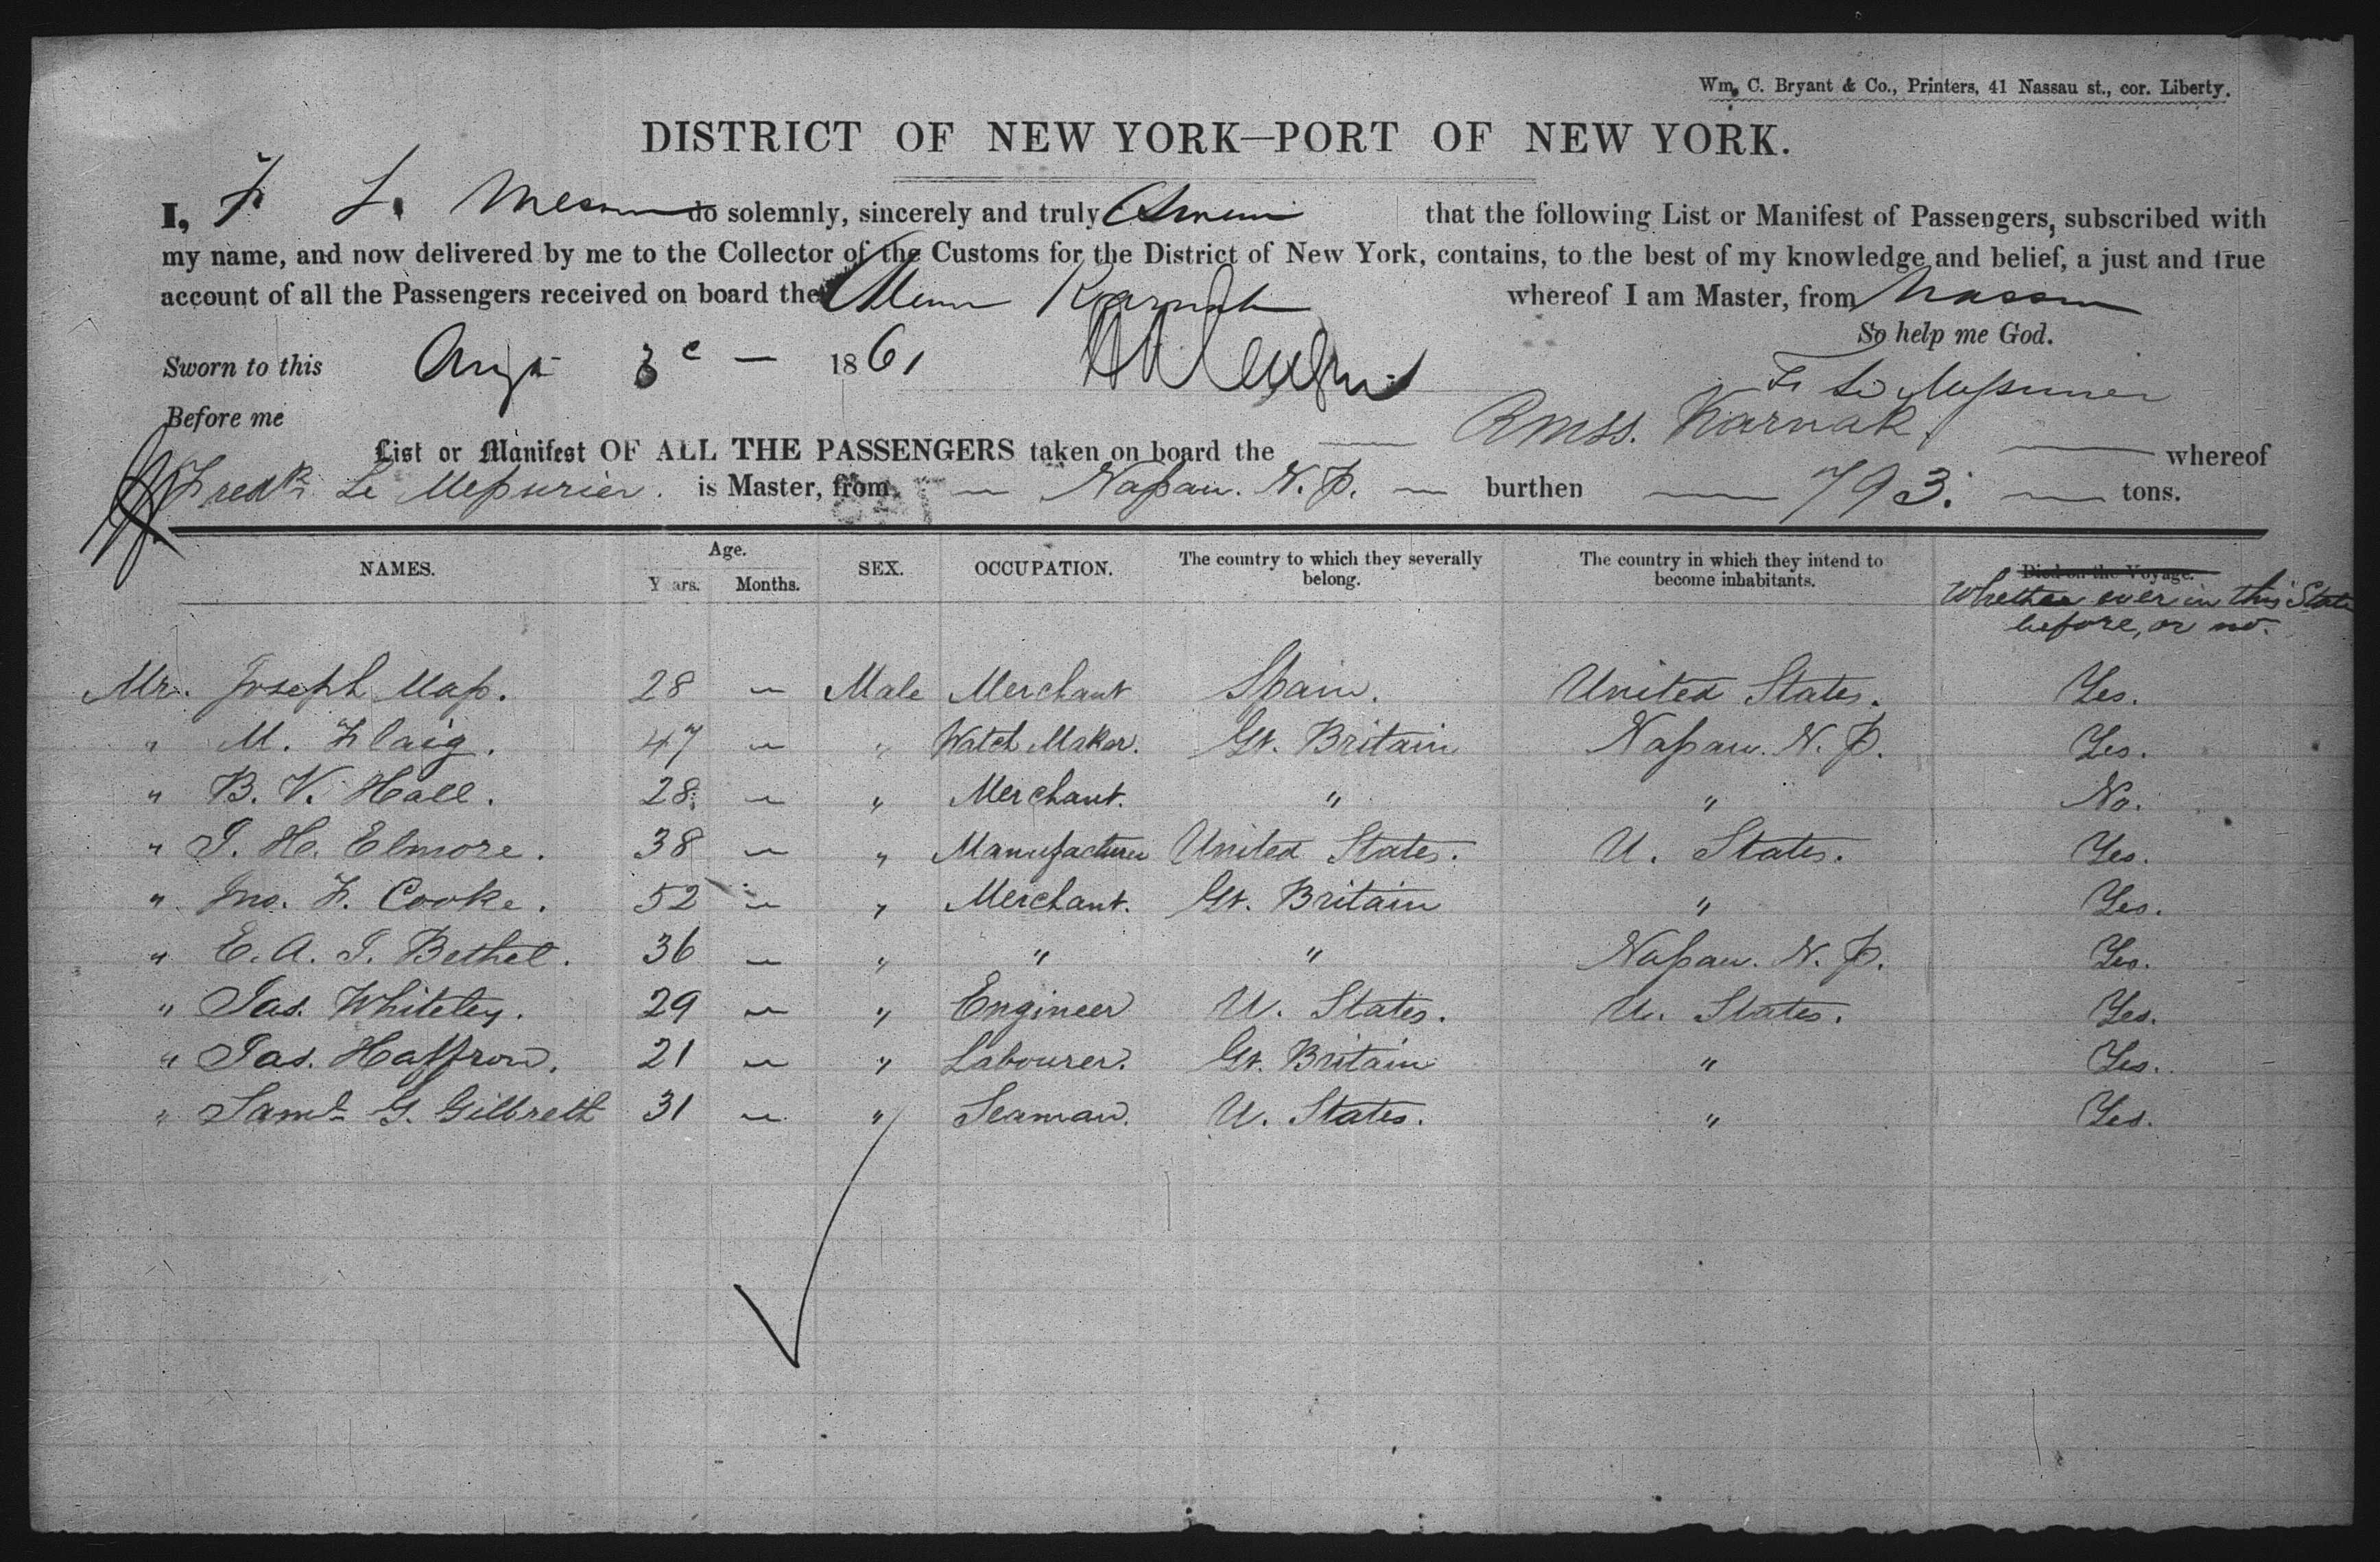 Wm. C. Bryant & Co., Printers, 41 Nassau st., cor. Liberty.
DISTRICT OF NEW YORK—PORT OF NEW YORK.
I, F L. do solemnly, sincerely and truly that the following List or Manifest of Passengers, subscribed with
my name, and now delivered by me to the Collector of the Customs for the District of New York, contains, to the best of my knowledge and belief, a just and true
account of all the Passengers received on board the Karnak whereof I am Master, from Nassau
So help me God.
Sworn to this Augt 3 — 1861
F. Le Messurier
Before me
List or Manifest OF ALL THE PASSENGERS taken on board the — RMSS. Karnak. — whereof
Fredk. Le Messurier. is Master, from — Nassau. N. P. — burthen — 793. — tons.
NAMES. Age. SEX. OCCUPATION. The country to which they severally belong. The country in which they intend to become inhabitants. Died on the Voyage.
Years. Months. Whether ever in this State before, or no.
Mr. Joseph 28 — Male Merchant Spain. United States. Yes.
" M. Flaig. 47 — " Watch Maker. Gt. Britain Nassau. N. P. Yes.
" B. V. Hall. 28 — " Merchant. " " No.
" J. H. Elmore. 38 — " Manufacturer United States. U. States. Yes.
" Jno. F. Cooke. 52 — " Merchant. Gt. Britain " Yes.
" E. A. J. Bethel. 36 — " " " Nassau. N. P. Yes.
" Jas. Whiteley. 29 — " Engineer U. States. U. States. Yes.
" Jas. Haffron. 21 — " Labourer. Gt. Britain " Yes.
" Saml. G. Gilbreth 31 — " Seaman. U. States. " Yes.